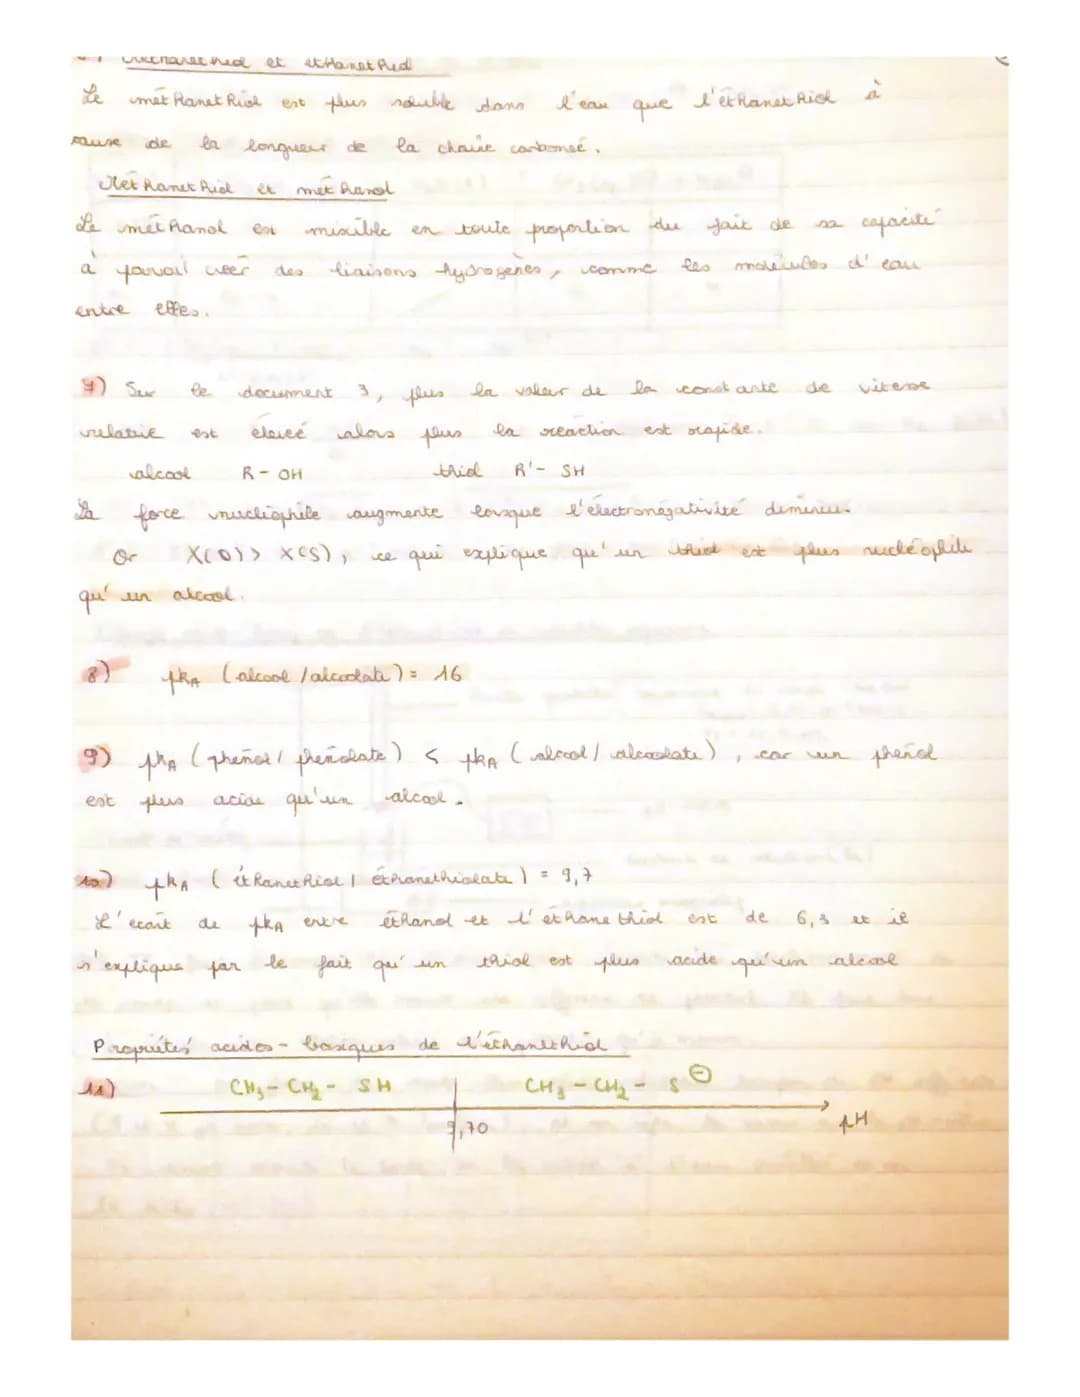 et éthanethiol
Le méthanethiol est plus soluble dans l'eau que l'éthanethiol à
cause de la longueur de la chaîne carbonée.
Méthanethiol et méthanol
Le méthanol est miscible en toute proportion du fait de sa capacité
à pouvoir créer des liaisons hydrogènes, comme les molécules d'eau
entre elles.
7) Sur le document 3, plus la valeur de la constante de vitesse
relative est élevée alors plus la réaction est rapide.
alcool R-OH thiol R'-SH
La force nucléophile augmente lorsque l'électronégativité diminue.
Or X(O) > X(S), ce qui explique qu'un thiol est plus nucléophile
qu'un alcool.
8) pKA (alcool/alcoolate) = 16
9) pKA (phénol/phénolate) < pKA (alcool/alcoolate), car un phénol
est plus acide qu'un alcool.
10) pKA (éthanethiol/éthanethiolate) = 9,7
L'écart de pKA entre éthanol et l'éthanethiol est de 6,3 et il
s'explique par le fait qu'un thiol est plus acide qu'un alcool
Propriétés acides-basiques de l'éthanethiol
11) CH3-CH2-SH CH3-CH2-S⊖
9,70 pH